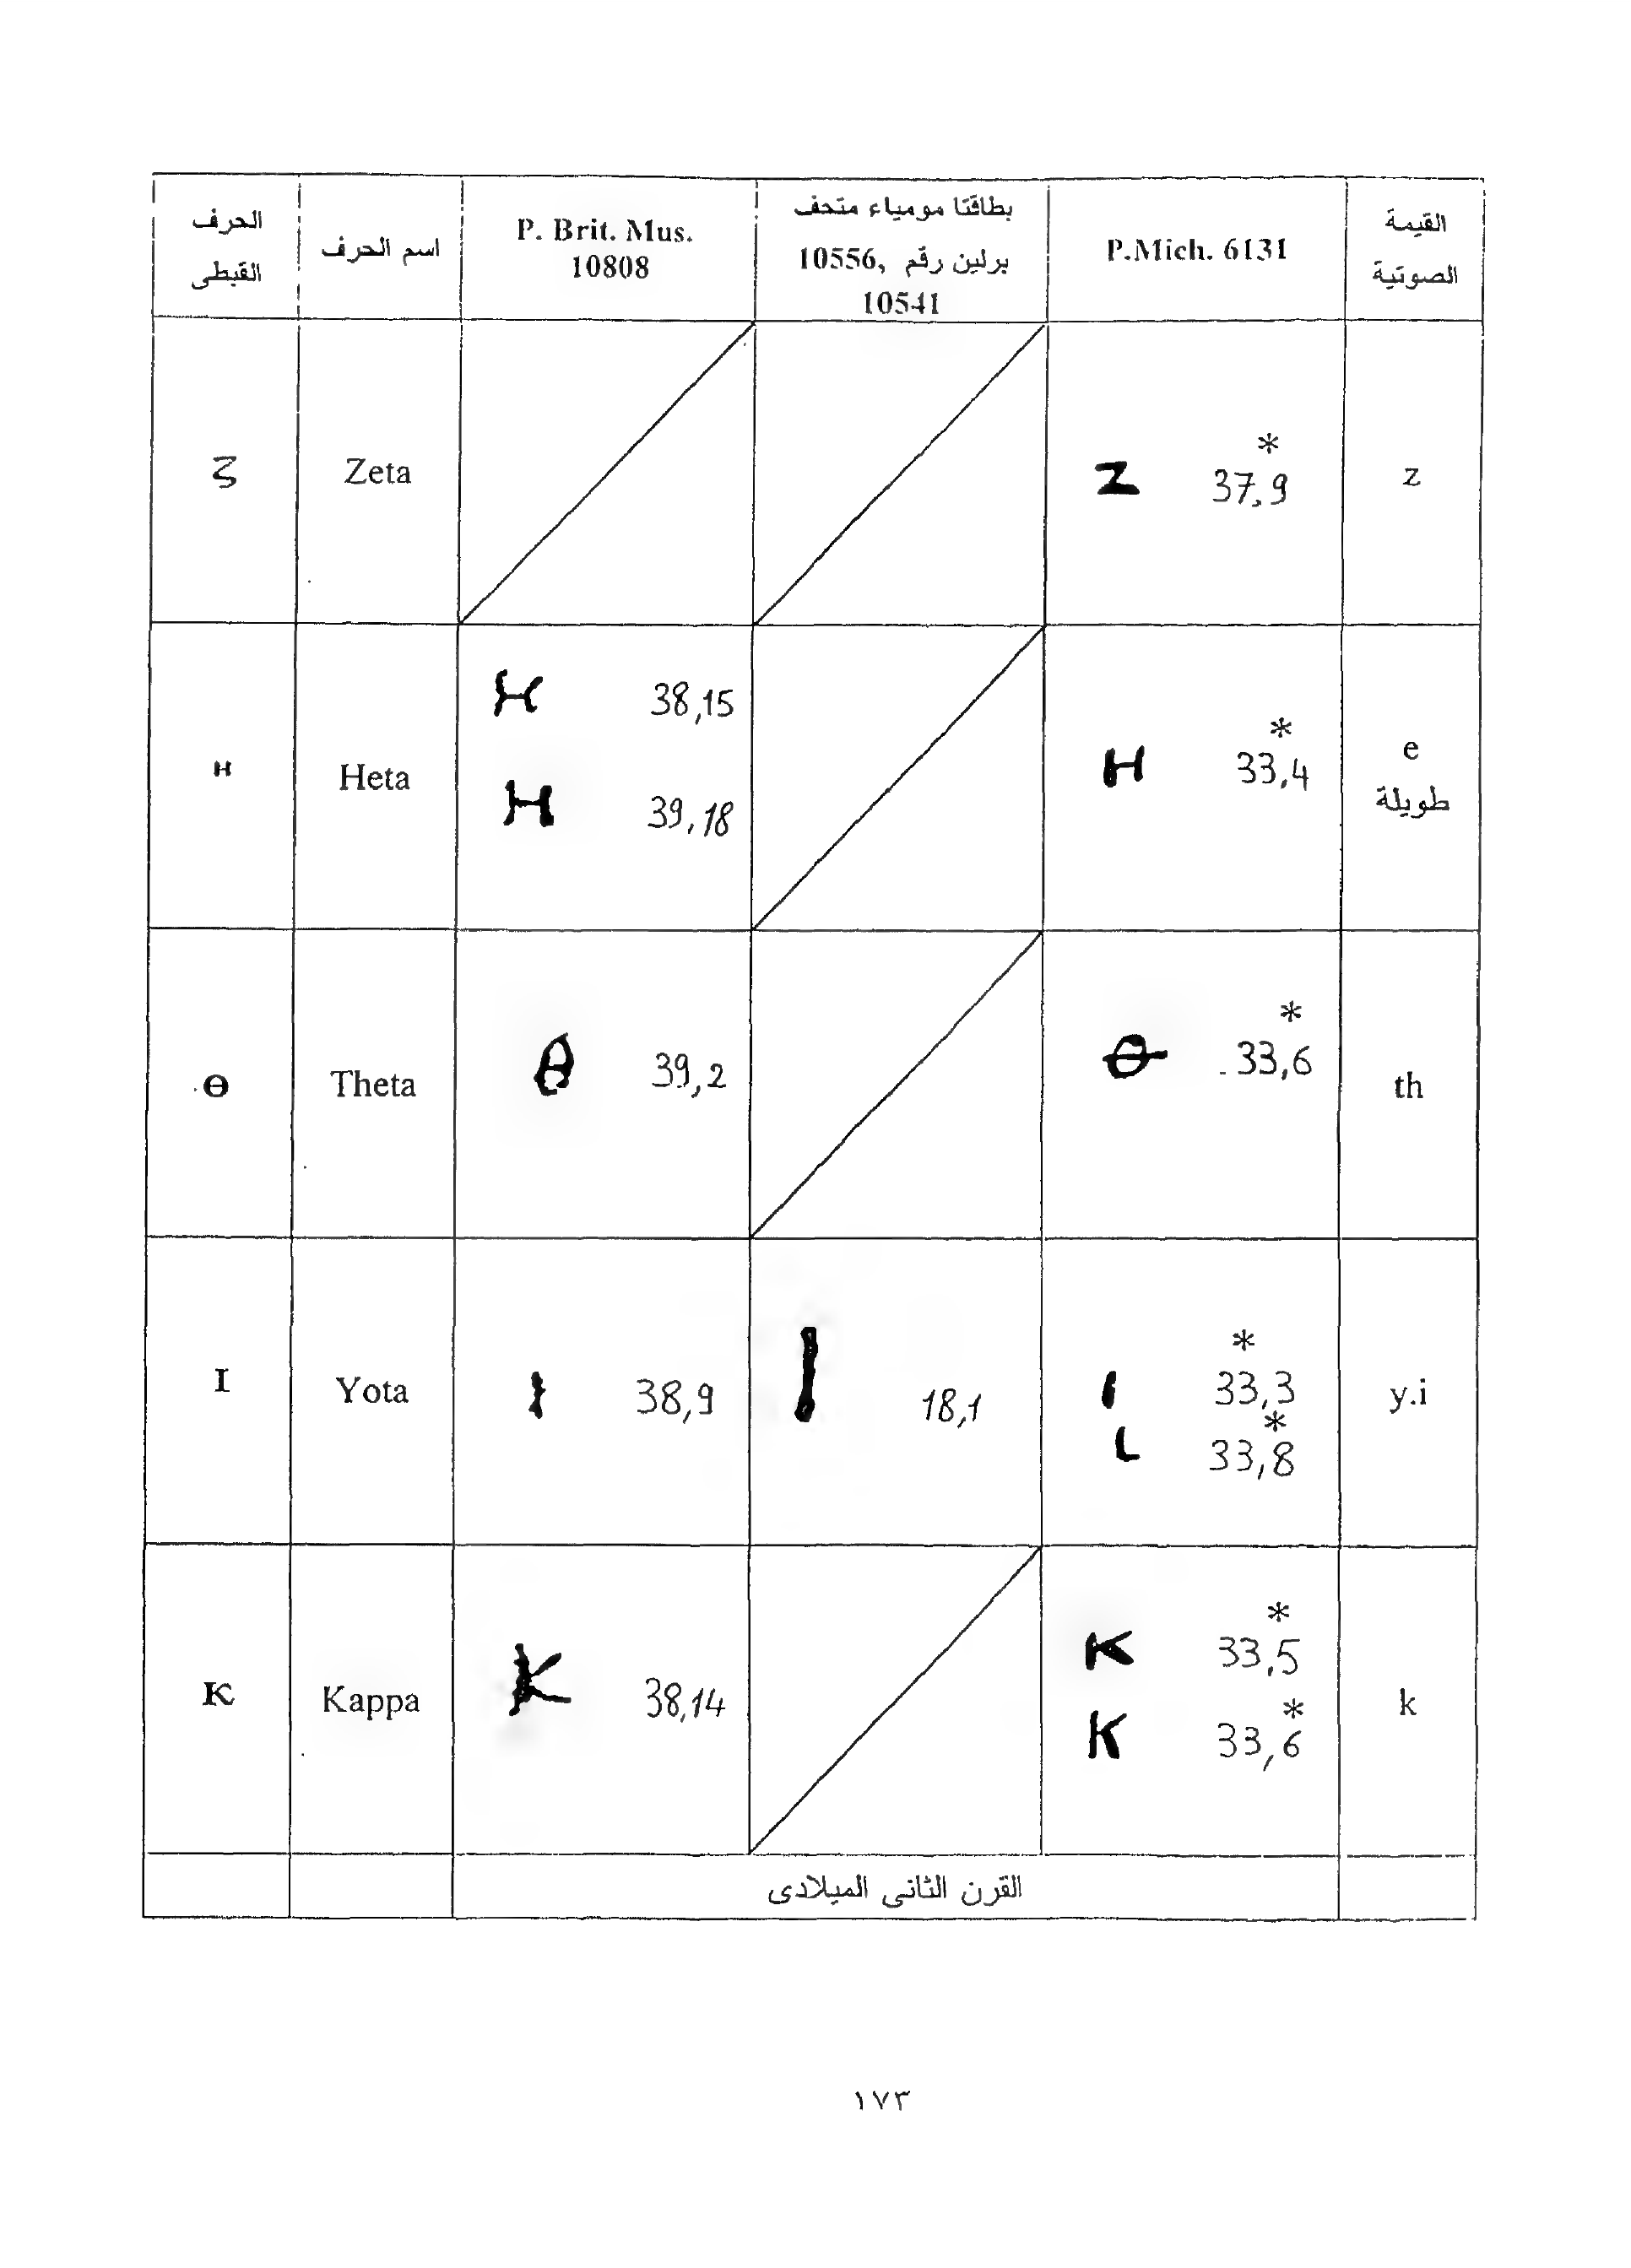 الحرف
القبطى
اسم الحرف
P. Brit. Mus.
10808
بطاقتا مومياء متحف
برلين رقم 10556,
10541
P.Mich. 6131
القيمة
الصوتية
ⲍ
Zeta
Z
*
37,9
z
ⲏ
Heta
H 38,15
H 39,18
H
*
33,4
e
طويلة
ⲑ
Theta
ⲑ 39,2
ⲑ
*
33,6
th
ⲓ
Yota
ⲓ 38,9
ⲓ 18,1
*
ⲓ 33,3
*
ⲓ 33,8
y.i
ⲕ
Kappa
K 38,14
*
K 33,5
*
K 33,6
k
القرن الثانى الميلادى
١٧٣